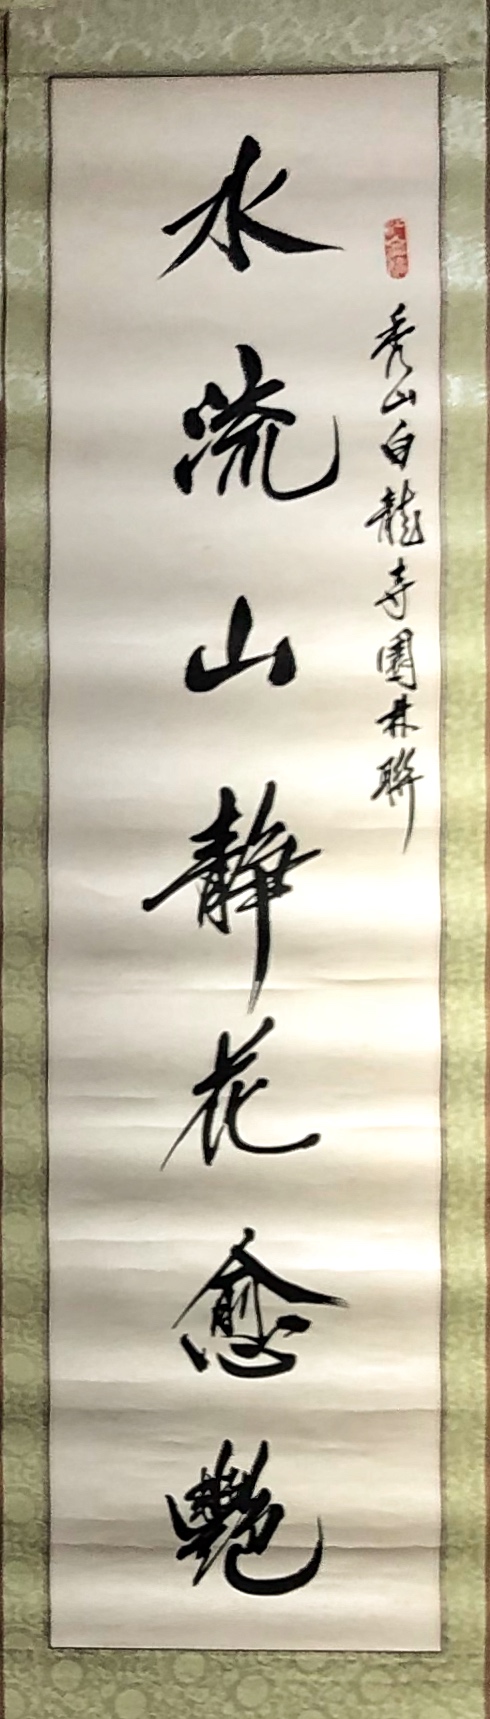 秀山白龍寺園林聯
水流山靜花愈艷